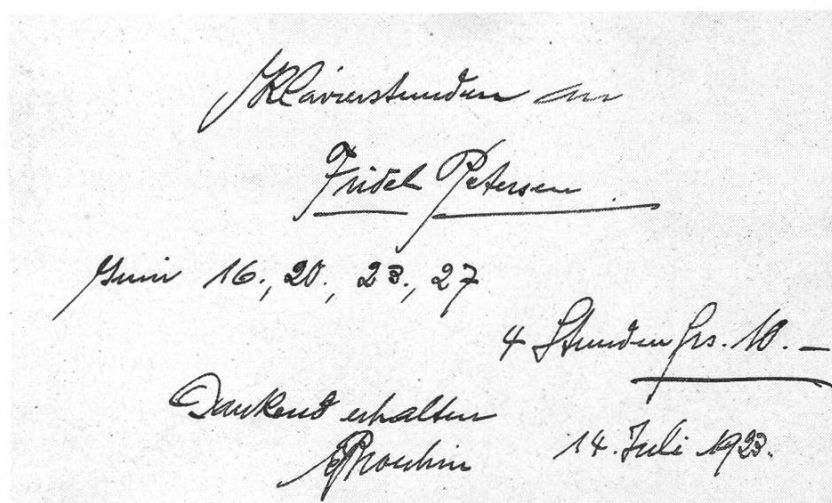 Klavierstunden an
Fridel Petersen
Juni 16., 20., 23., 27
4 Stunden frs. 10. —
Dankend erhalten
14. Juli 1923.